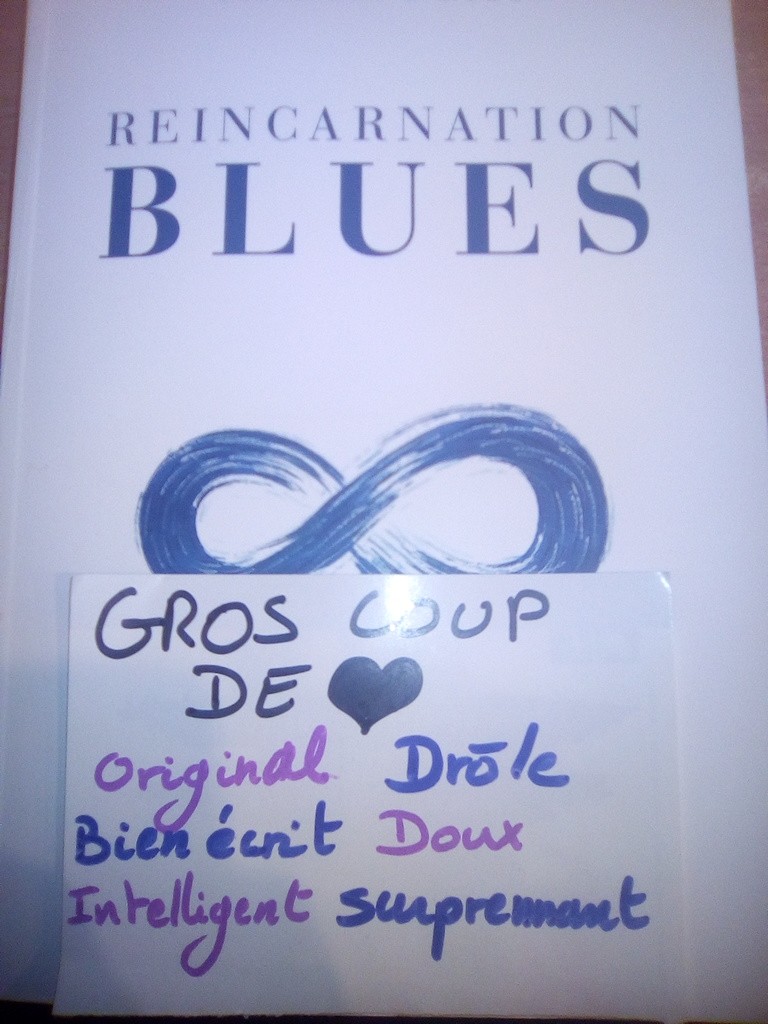 REINCARNATION
BLUES
GROS COUP
DE ♥
Original Drôle
Bien écrit Doux
Intelligent surprennant